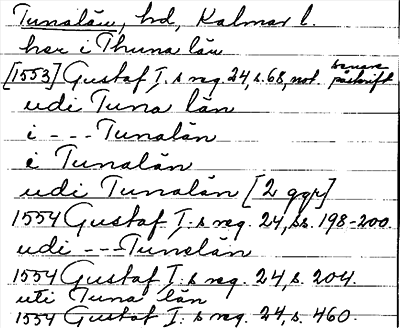 Tunalän, hd, Kalmar l.
her i Thuna län
[1553] Gustaf I:s reg. 24, s. 68, not. senare påskrift
udi Tuna län
i - - - Tunalän
i Tunalän
udi Tunalän [2 ggr]
1554 Gustaf I:s reg. 24, ss. 198-200.
udi - - - Tunelän
1554 Gustaf I:s reg. 24, s. 204.
uti Tuna län
1554 Gustaf I:s reg. 24, s. 460.